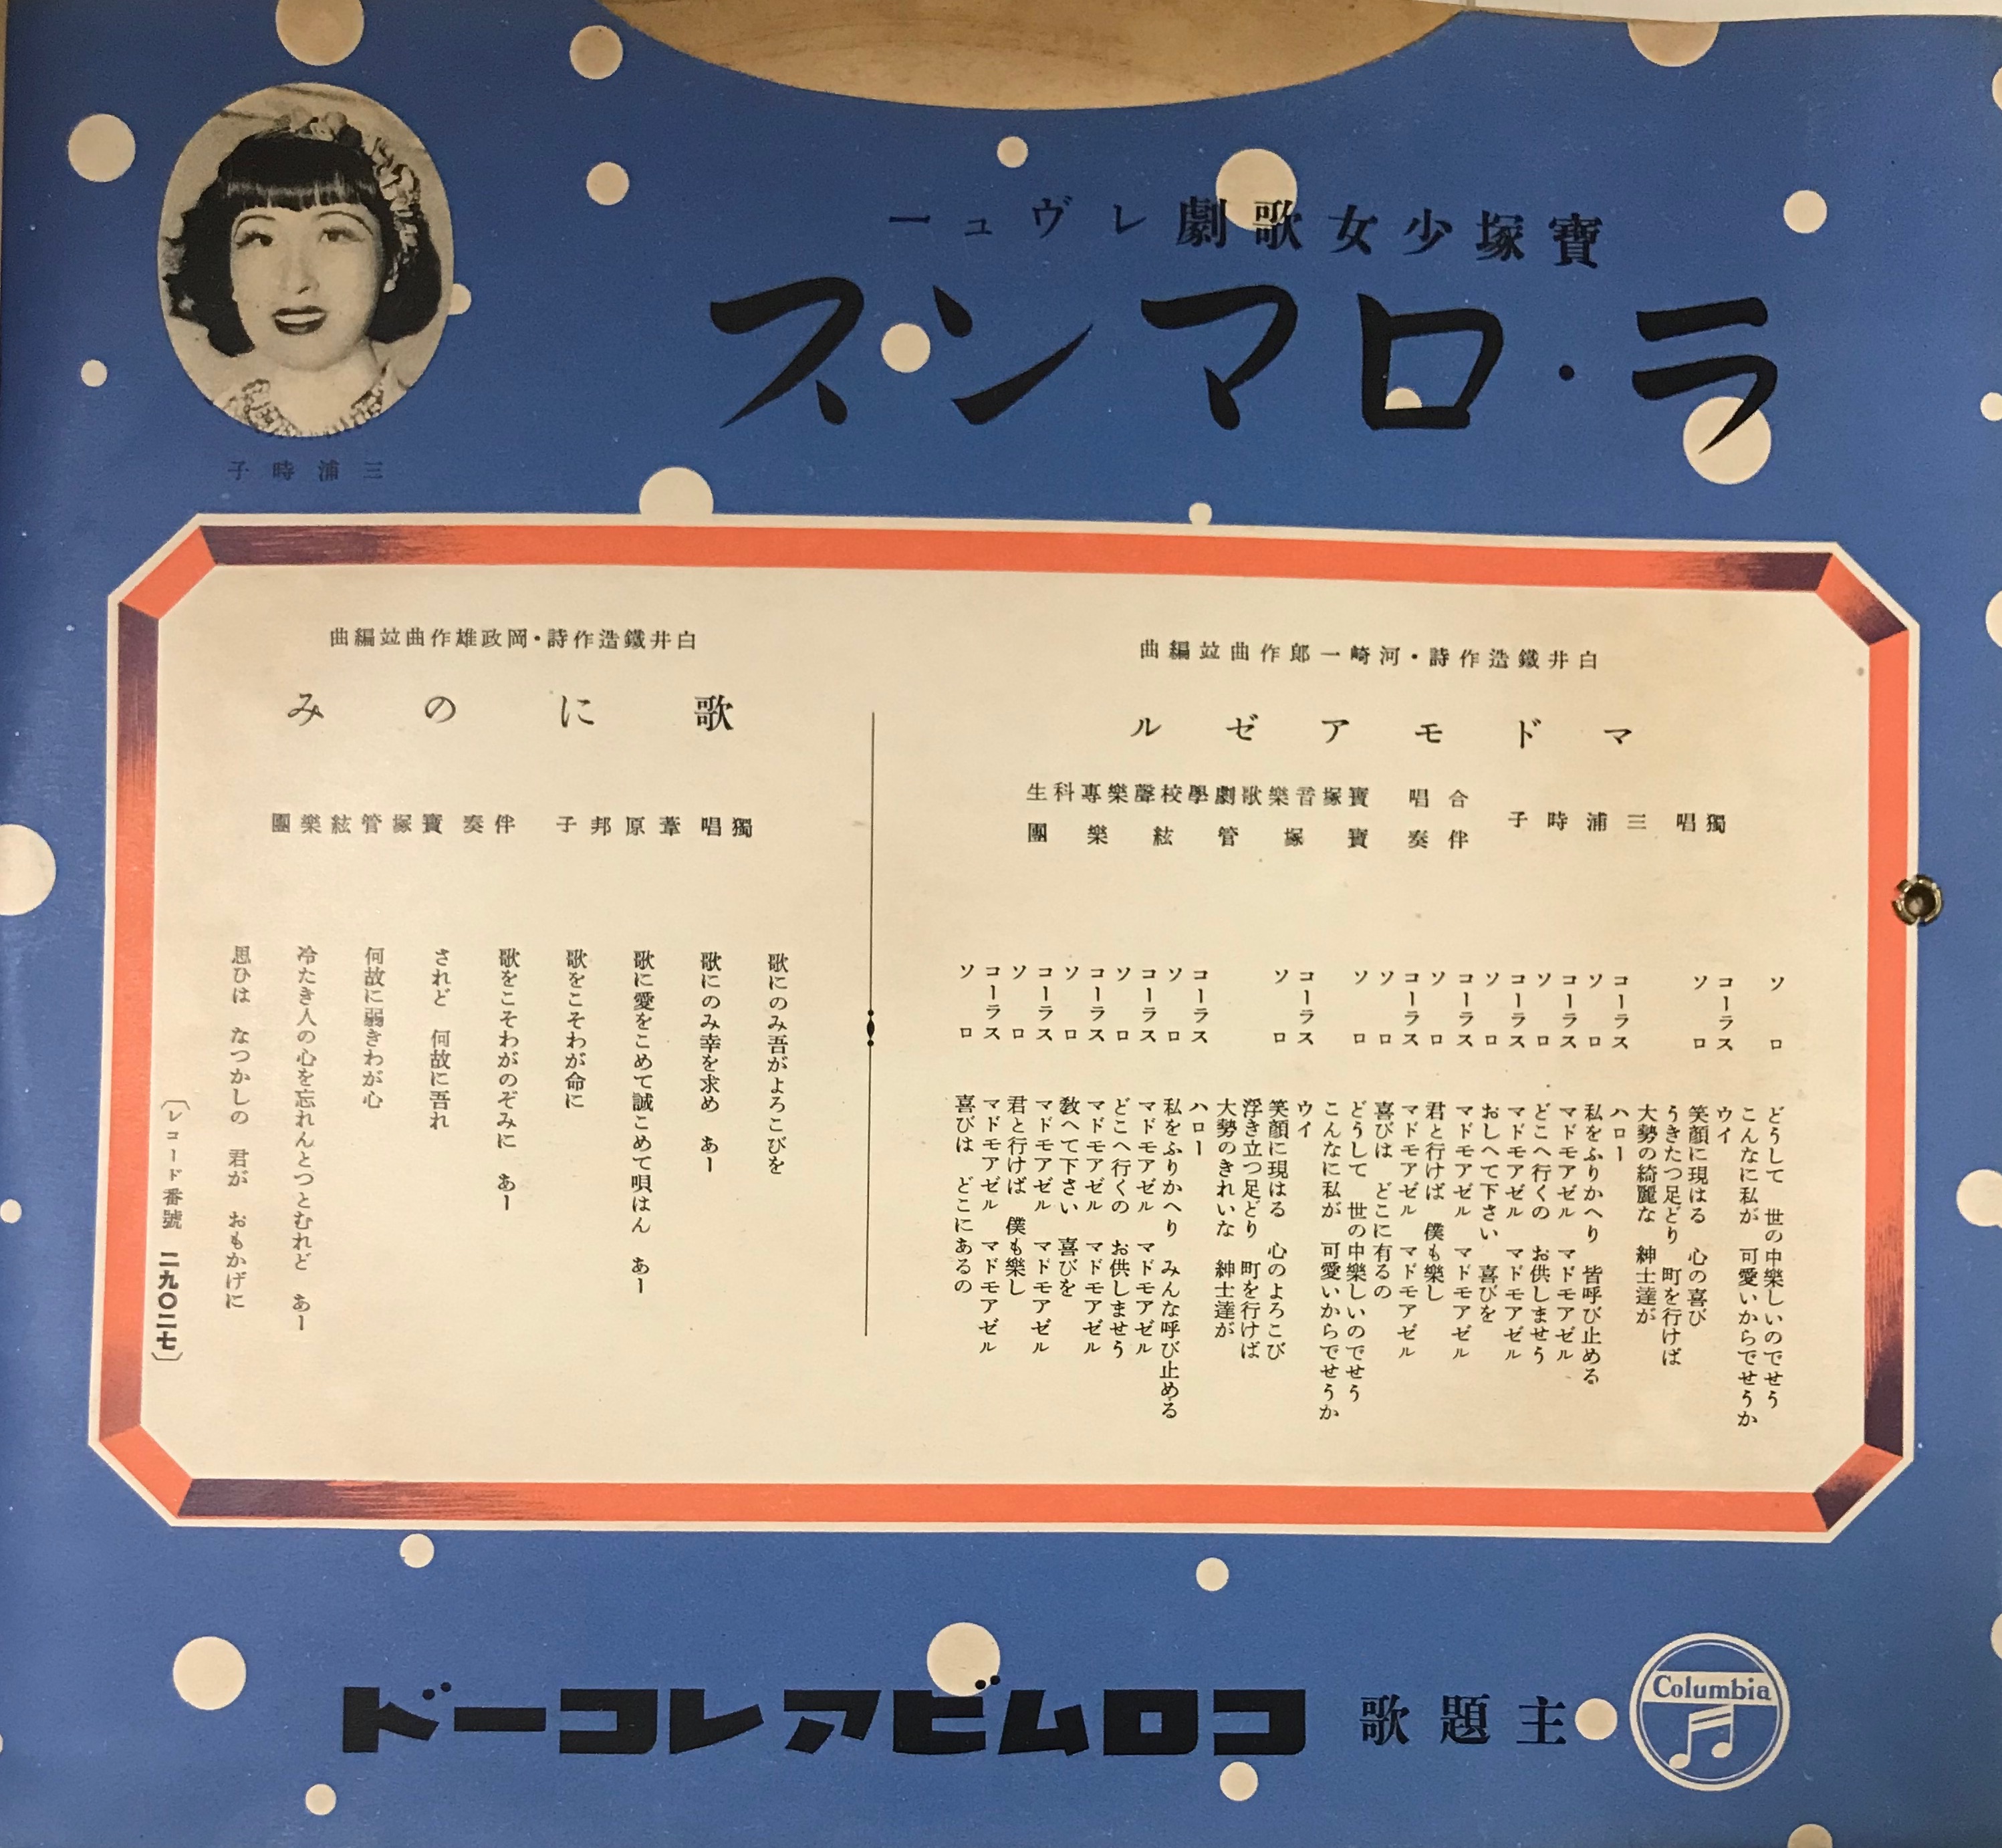 寶塚少女歌劇レヴュー
ラ・ロマンス
三浦時子
白井鐵造作詩・河崎一郎作曲竝編曲
マドモアゼル
獨唱 三浦時子
合唱 寶塚音樂歌劇學校聲樂專科生
伴奏 寶塚管絃樂團
ソロ どうして 世の中樂しいのでせう
こんなに私が 可愛いからでせうか
コーラス ウイ
ソロ 笑顔に現はる 心の喜び
うきたつ足どり 町を行けば
大勢の綺麗な 紳士達が
コーラス ハロー
ソロ 私をふりかへり 皆呼び止める
コーラス マドモアゼル マドモアゼル
ソロ どこへ行くの お供しませう
コーラス マドモアゼル マドモアゼル
ソロ おしへて下さい 喜びを
コーラス マドモアゼル マドモアゼル
ソロ 君と行けば 僕も樂し
コーラス マドモアゼル マドモアゼル
ソロ 喜びは どこに有るの
ソロ どうして 世の中樂しいのでせう
こんなに私が 可愛いからでせうか
コーラス ウイ
ソロ 笑顔に現はる 心のよろこび
浮き立つ足どり 町を行けば
大勢のきれいな 紳士達が
コーラス ハロー
ソロ 私をふりかへり みんな呼び止める
コーラス マドモアゼル マドモアゼル
ソロ どこへ行くの お供しませう
コーラス マドモアゼル マドモアゼル
ソロ 敎へて下さい 喜びを
コーラス マドモアゼル マドモアゼル
ソロ 君と行けば 僕も樂し
コーラス マドモアゼル マドモアゼル
ソロ 喜びは どこにあるの
白井鐵造作詩・岡政雄作曲竝編曲
歌にのみ
獨唱 葦原邦子 伴奏 寶塚管絃樂團
歌にのみ吾がよろこびを
歌にのみ幸を求め あー
歌に愛をこめて誠こめて唄はん あー
歌をこそわが命に
歌をこそわがのぞみに あー
されど 何故に吾れ
何故に弱きわが心
冷たき人の心を忘れんとつとむれど あー
思ひは なつかしの 君が おもかげに
〔レコード番號 二九〇二七〕
Columbia
主題歌
コロムビアレコード